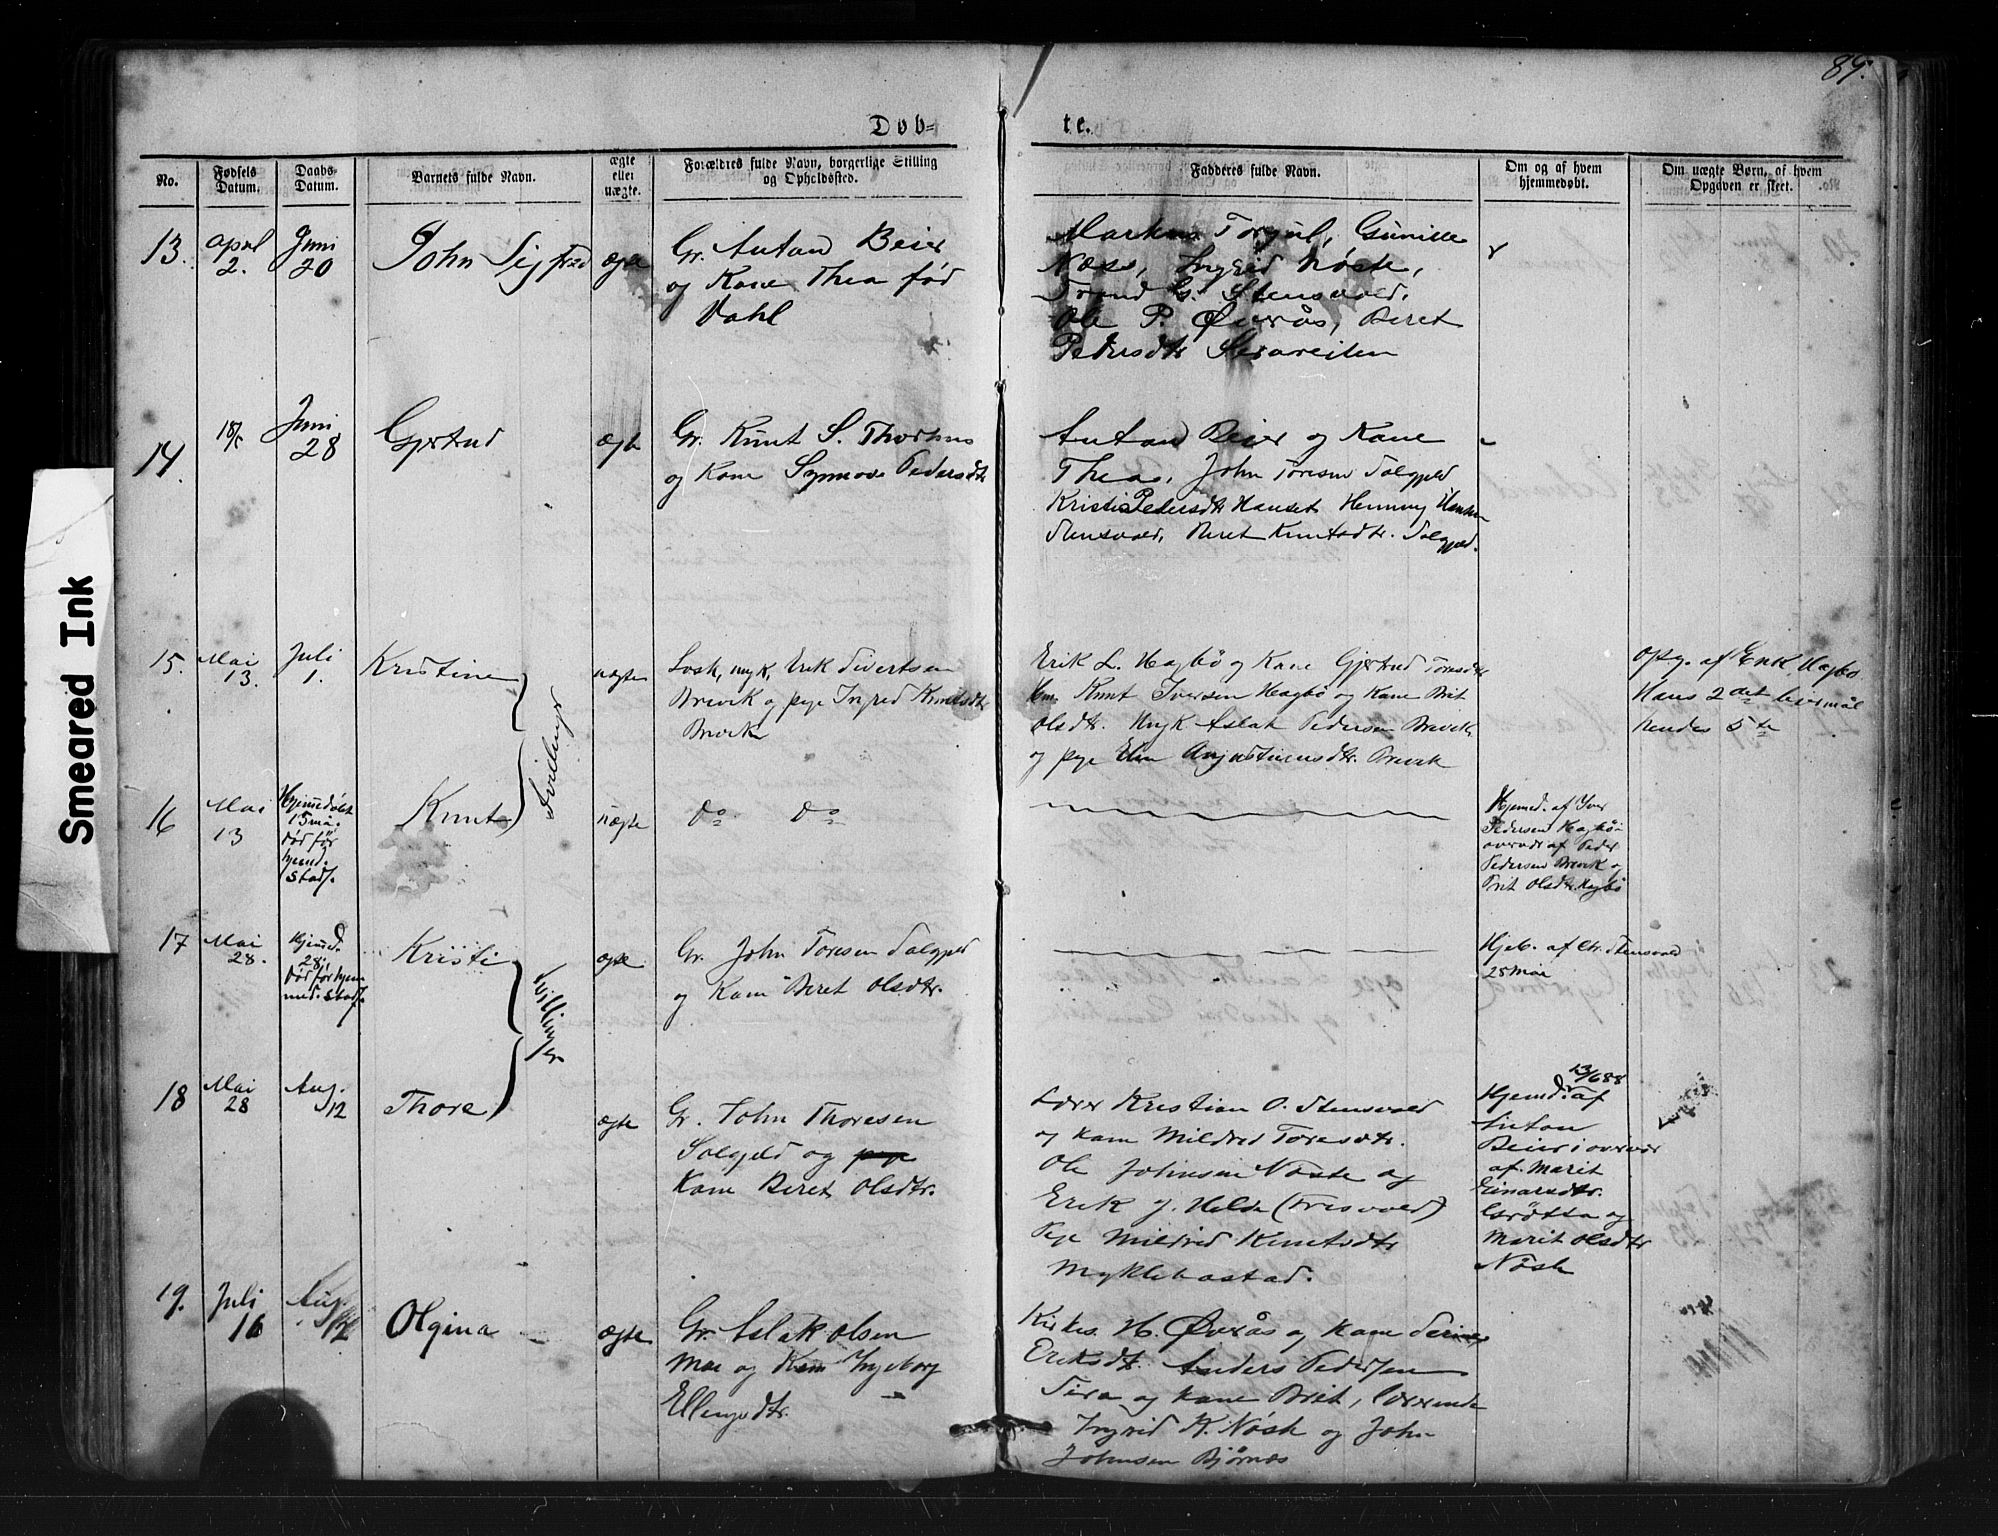 89.
Døb-
te.
No.
Fødsels Datum.
Daabs-Datum.
Barnets fulde Navn.
ægte eller uægte.
Forældres fulde Navn, borgerlige Stilling
og Opholdssted.
Faddernes fulde Navn.
Om og af hvem hjemmedøbt.
Om uægte Børn, af hvem
Opgaven er skeet.
Smeared Ink
13.
April
2.
Juni
20
John Sigfred
ægte
Gr. Antand Beier
og Kone Thea fød
Dahl
Næss, Ingrid Nøste,
Trond G. Stensvold,
Ole P. Øverås, Beret
Pedersdtr
14.
Juni
28
Gjertrud
ægte
Gr. Knut S.
og Kone Synnove Pedersdtr
Antand Beier og Kone
Thea, John Toresen Solgjeld
Kristi Pedersdtr Hanset Henning Hansen
Stensvold, Beret Knutsdtr. Solgjeld.
15.
Mai
13.
Juli
1.
Kristine
Tvillinger
uægte
Erik Sivertsen
Brevik og pige Ingred Knutsdtr
Brevik
Erik L. Hagbø og Kone Gjertrud Toresdtr
Knut Iversen Hagbø og Kone Brit
Olsdtr. Ungk Aslak Pedersen Brevik
og pige Brevik
Opg. af Erik Hagbø
Hans 2det leiermål
hendes 5te
16
Mai
13
Hjemmedøbt
15 mai.
død før
hjemd.
stadf.
Knut
uægte
do do
Hjemd. af Iver
Pedersen Hagbø
overvær af Peder
Pedersen Brevik og
Brit Olsdtr. Hagbø
17
Mai
28.
Hjemd.
28,
død før hjem
med. stadf.
Kristi
Tvillinger
ægte
Gr. John Toresen Solgjeld
og Kone Beret Olsdtr.
af Chr. Stensvold
28 Mai
18
Mai
28
Aug.
12
Thore
ægte
Gr. John Thoresen
Solgjeld og pige
Kone Beret Olsdtr.
Lærer Kristian O. Stensvold
og Kone Mildred Toresdtr.
Ole Johnsen Nøste og
Erik J. Helde (Fresvold)
Pige Mildred Knutsdtr
Myklebostad.
13/6 88
Hjemd. af
Anton
Beier i overvær
af Marit
Einarsdtr.
Grøtta og
Marit Olsdtr
Nøste
19.
Juli
16
Aug.
Olgina
ægte
Gr. Aslak Olsen
Moe og Kone Ingeborg
Ellingsdtr.
Kirkes. H. Øverås og Kone
Eriksdtr. Anders Pedersen
Sira og Kone Brit,
Ingrid K. Nøste og John
Johnsen Bjørnes